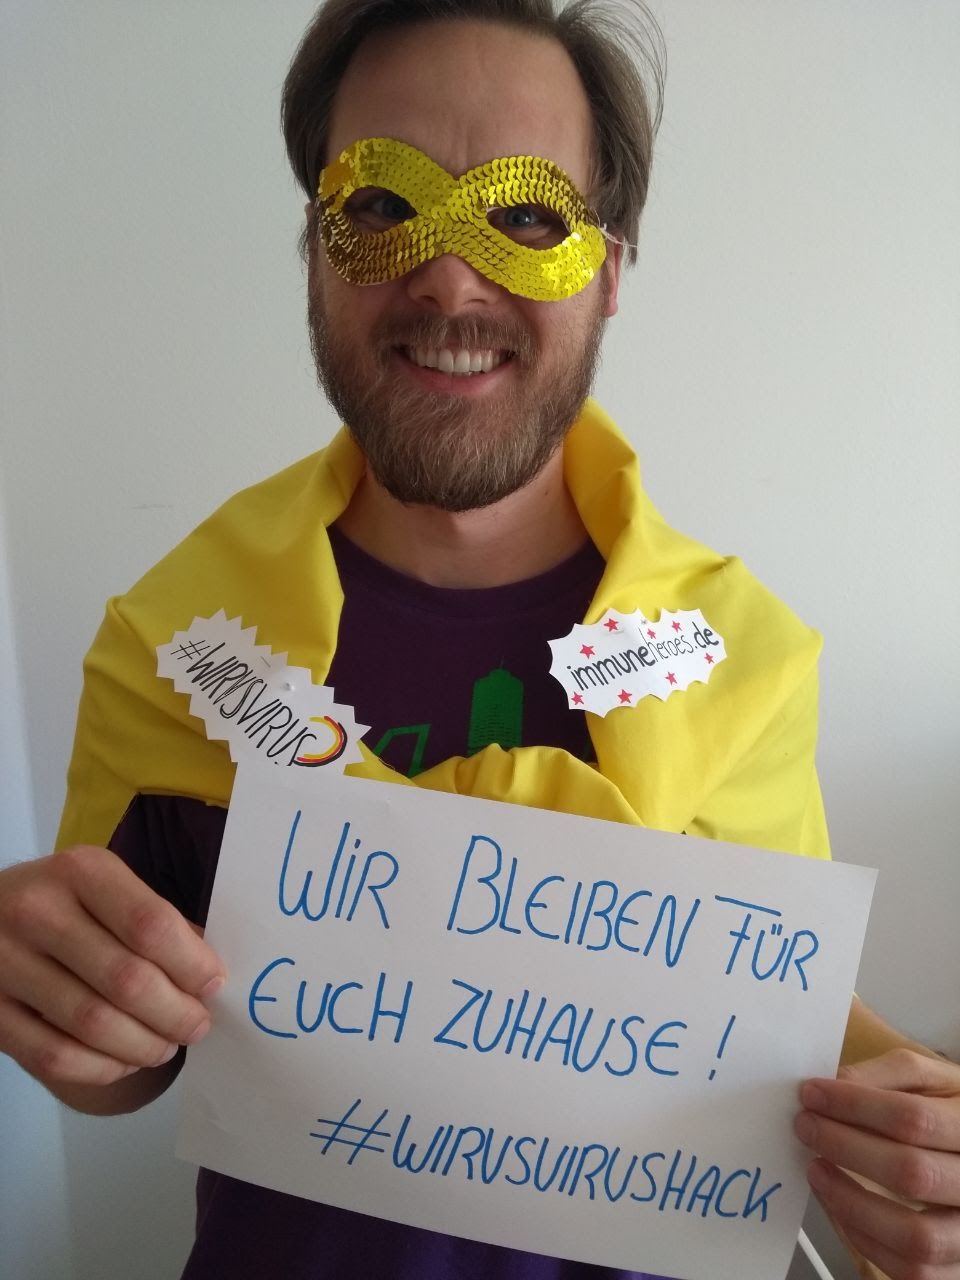 #WIRVSVIRUS
immuneheroes.de
WIR BLEIBEN FÜR
EUCH ZUHAUSE!
#WIRVSVIRUSHACK